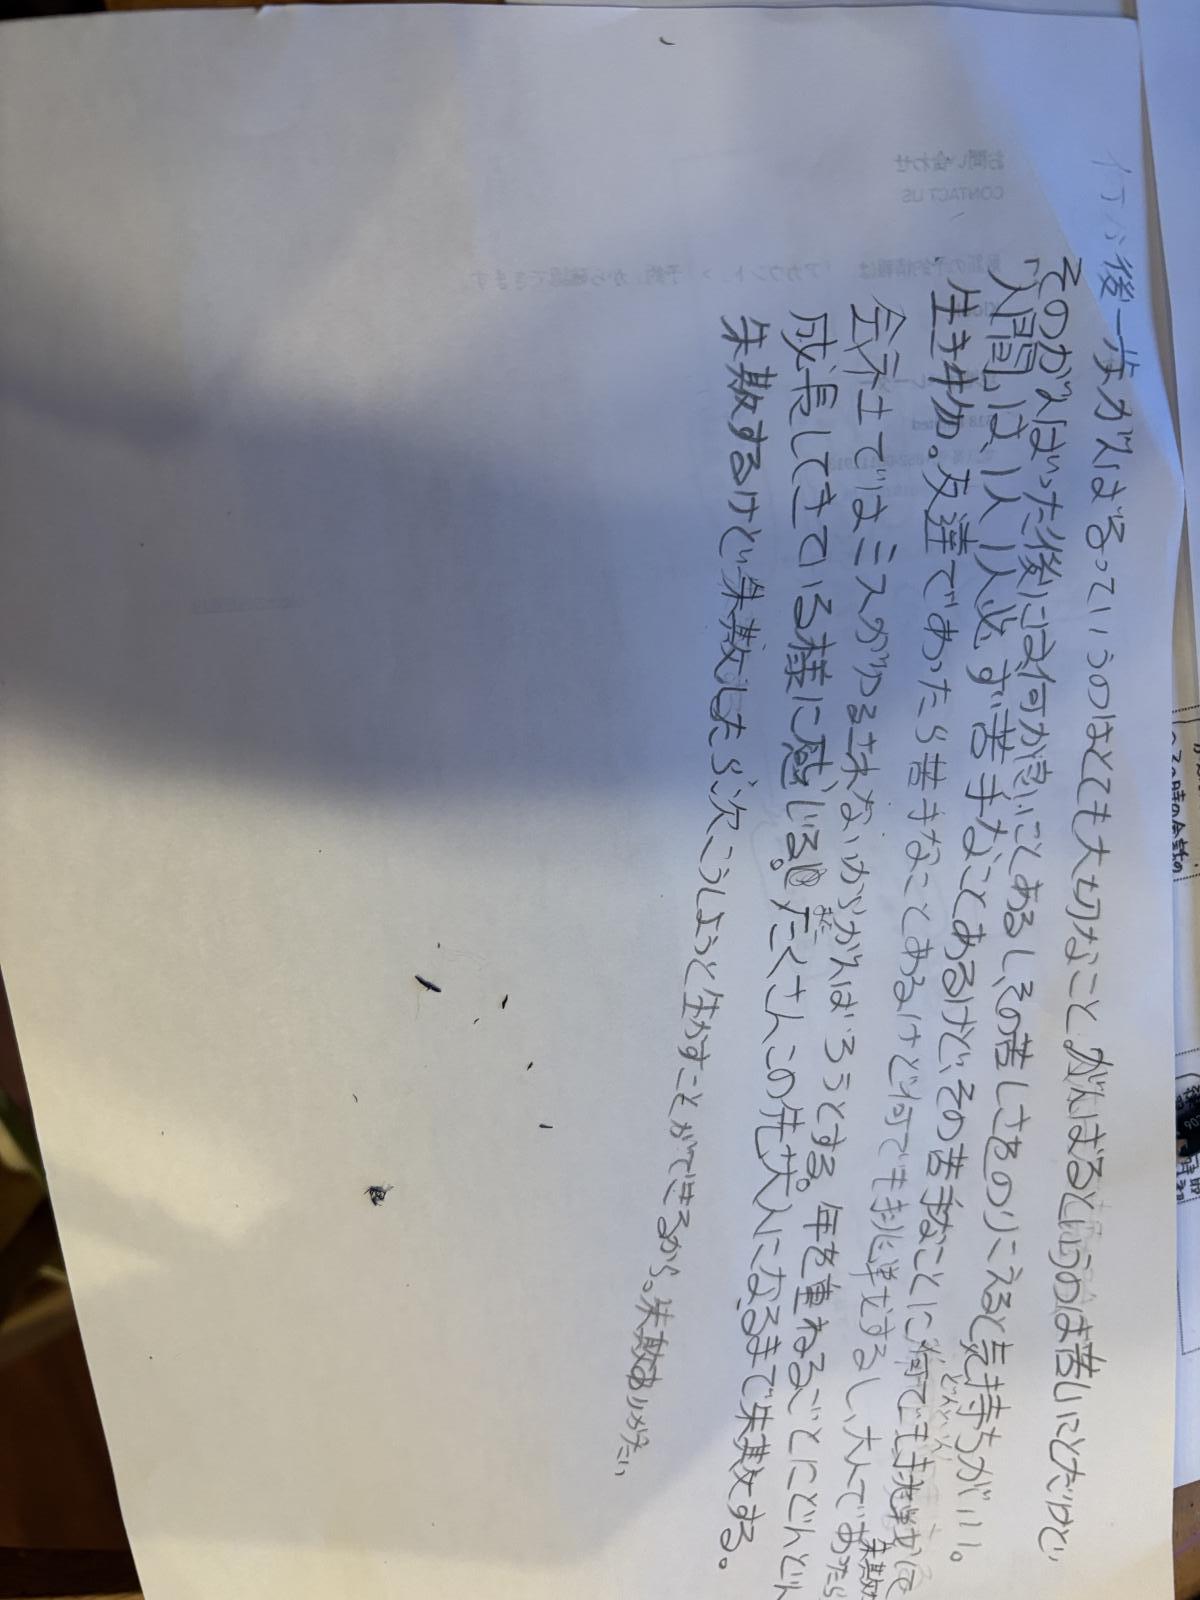 後一歩がんばるっていうのはとても大切なこと がんばるというのは苦しいことだけど
そのがんばった後には何か良いことあるし、その苦しさをのりこえると気持ちがいい。
「人間」は、1人1人必ず苦手なことあるけど、その苦手なことに何でも挑戦
どんどん
生き物。友達であったら苦手なことあるけど何でも挑戦するし、大人であったら
会社ではミスがゆるされないががんばろうとする。年を重ねるごとにどんどん
失敗
成長してきている様に感じる。たくさんこの先大人になるまで失敗する。
まだ
失敗するけど失敗したら次こうしようと生かすことができるから。失敗ありがたい
お問い合わせ
CONTACT US
最新の予約情報は、「アカウント」>「予約」から確認できます。